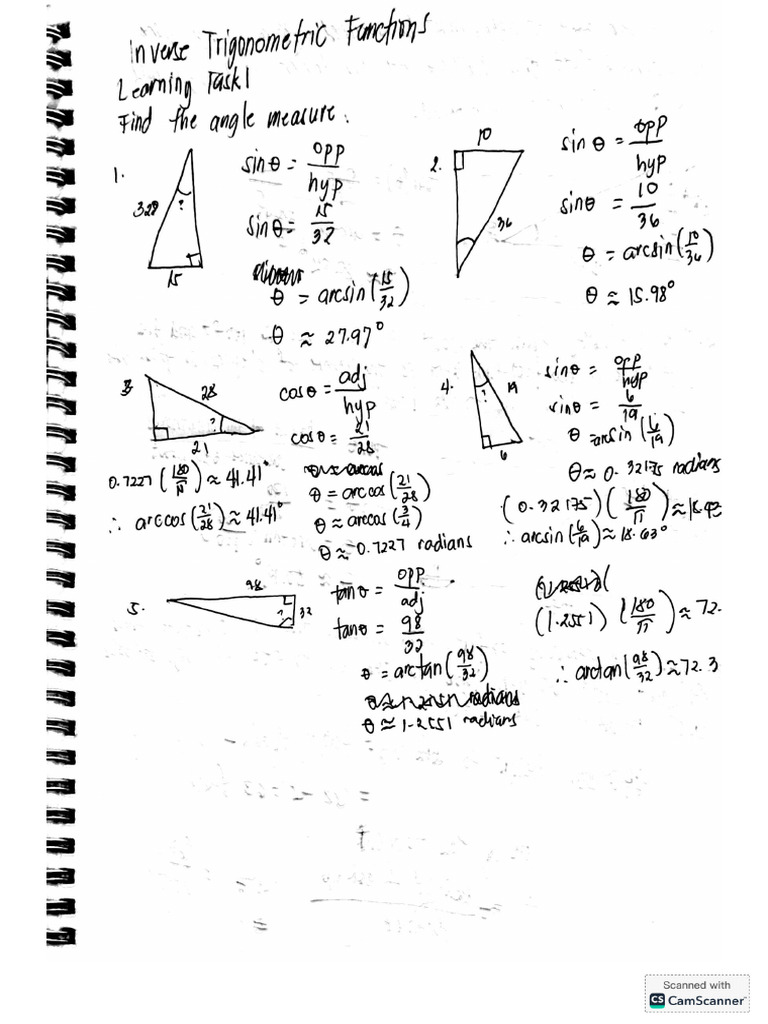 Inverse Trigonometric Functions
Learning Task 1
Find the angle measure.
1.
?
15
sinθ = opp/hyp
sinθ = 15/32
θ = arcsin(15/32)
θ ≈ 27.97°
2.
10
36
sinθ = opp/hyp
sinθ = 10/36
θ = arcsin(10/36)
θ ≈ 15.98°
3.
28
?
21
cosθ = adj/hyp
cosθ = 21/28
θ = arccos(21/28)
θ ≈ arccos(3/4)
θ ≈ 0.7227 radians
0.7227 (180/π) ≈ 41.41°
∴ arccos(21/28) ≈ 41.41°
4.
19
?
6
sinθ = opp/hyp
sinθ = 6/19
θ = arcsin(6/19)
θ ≈ 0.32175 radians
(0.32175)(180/π) ≈
∴ arcsin(6/19) ≈ 18.63°
5.
98
32
?
tanθ = opp/adj
tanθ = 98/32
θ = arctan(98/32)
θ ≈ 1.2551 radians
(1.2551) (180/π) ≈ 72.
∴ arctan(98/32) ≈ 72.3
Scanned with
CS CamScanner